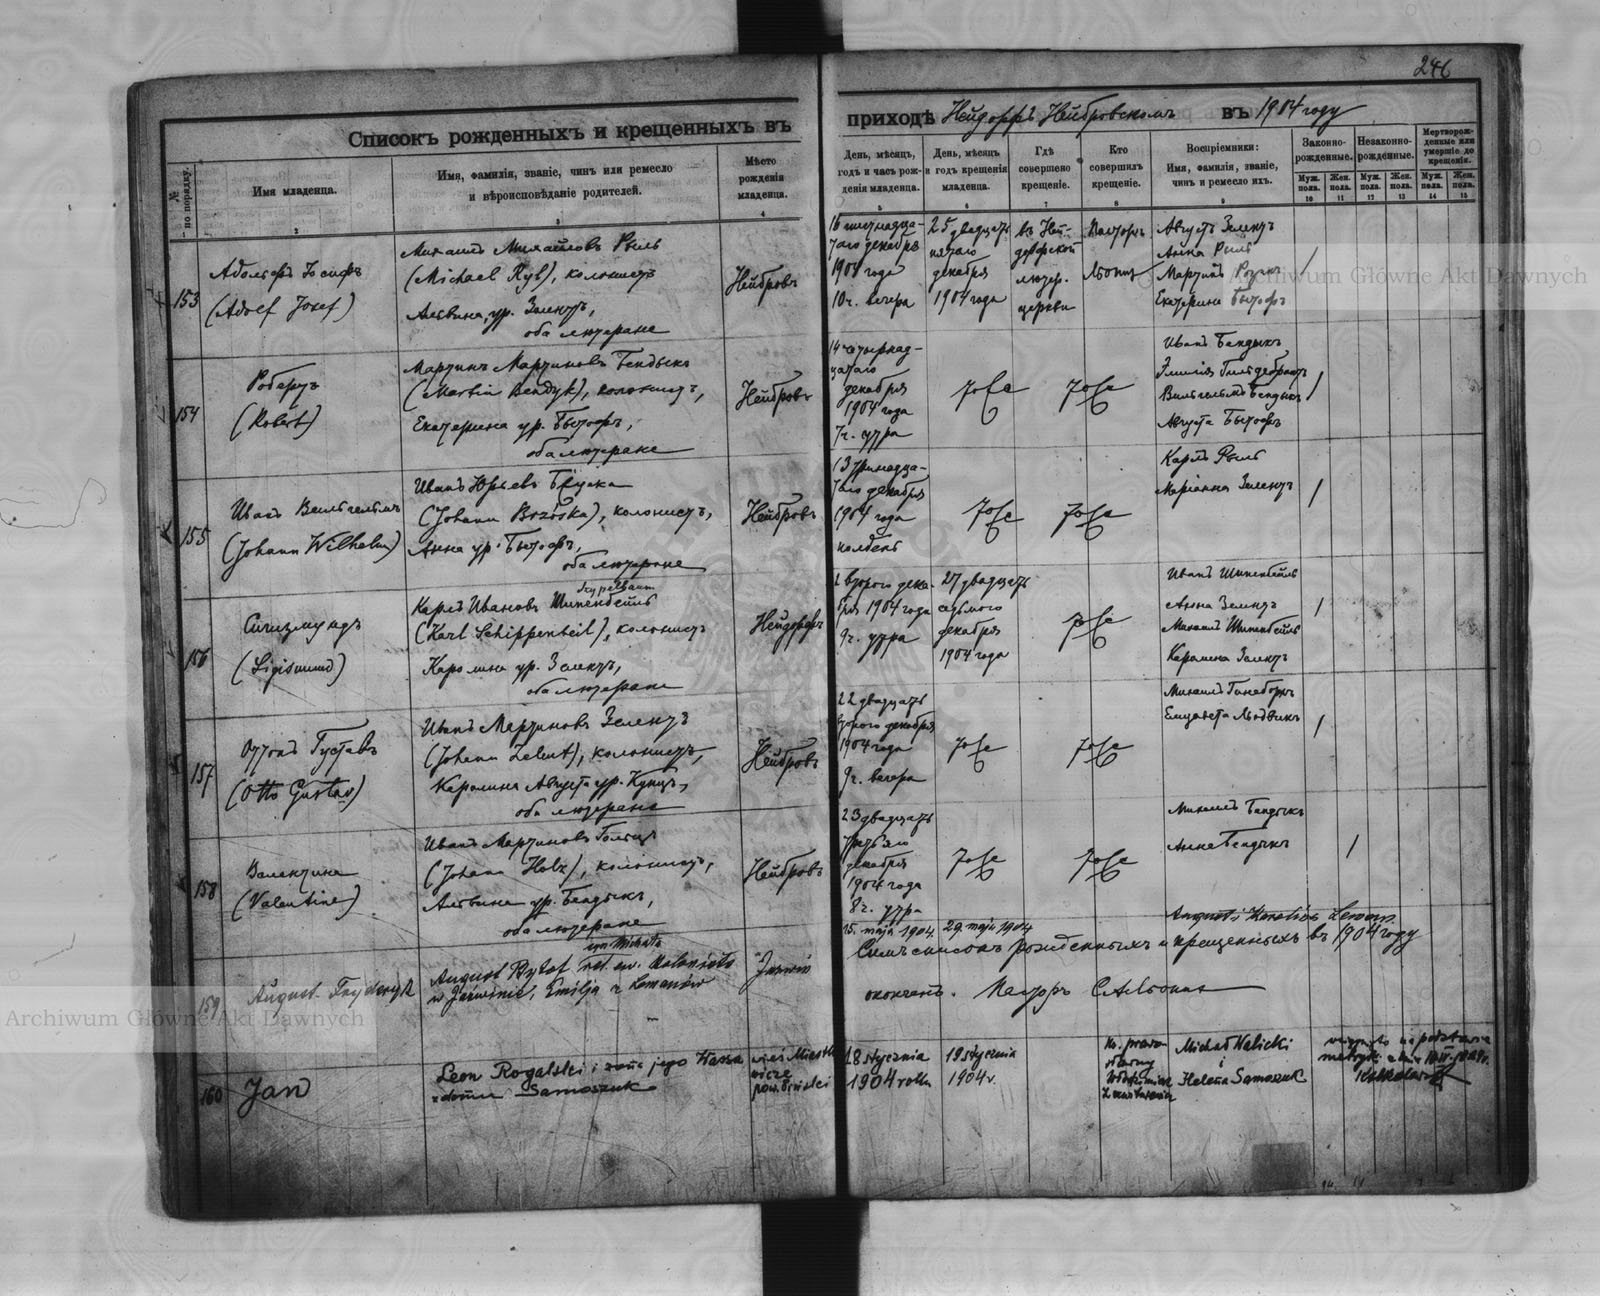 246
Списокъ рожденныхъ и крещенныхъ въ
приходѣ Нейдорфъ Нейбровскомъ въ 1904 году
№ по порядку.
Имя младенца.
Имя, фамилія, званіе, чинъ или ремесло
и вѣроисповѣданіе родителей.
Мѣсто
рожденія
младенца.
День, мѣсяцъ,
годъ и часъ рож-
денія младенца.
День, мѣсяцъ
и годъ крещенія
младенца.
Гдѣ
совершено
крещеніе.
Кто
совершилъ
крещеніе.
Воспріемники:
Имя, фамилія, званіе,
чинъ и ремесло ихъ.
Законно-
рожденные.
Незаконно-
рожденные.
Мертворож-
денные или
умершіе до
крещенія.
Муж. пола.
Жен. пола.
Муж. пола.
Жен. пола.
Муж. пола.
Жен. пола.
2 3 4 5 6 7 8 9 10 11 12 13 14 15
153
Адольфъ Іосифъ
(Adolf Josef)
Михаилъ Михайловъ Рыль
(Michael Ryl), колонистъ
Альвина, ур. Зелентъ,
оба лютеране
Нейбровъ
16 шестнадца-
таго декабря
1904 года
10 ч. вечера
25 двадцать
пятаго
декабря
1904 года
въ Ней-
дорфской
лютер.
церкви
Пасторъ
Августъ Зелентъ
Анна Рыль
Мартинъ
Екатерина Бытофъ
154
Робертъ
(Robert)
Мартинъ Мартиновъ Бендыкъ
(Martin Bendyk), колонистъ,
Екатерина ур. Бытофъ,
оба лютеране
Нейбровъ
14 четырнад-
цатаго
декабря
1904 года
7 ч. утра
тоже
тоже
Иванъ Бендыкъ
Эмилія Гильдебрантъ
Вильгельмъ Бендыкъ
Августа Бытофъ
155
Иванъ Вильгельмъ
(Johann Wilhelm)
Иванъ Юрьевъ
(Johann Brzóska), колонистъ,
Анна ур. Бытофъ,
оба лютеране
Нейбровъ
13 тринадца-
таго декабря
1904 года
тоже
тоже
Карлъ Рыль
Маріанна Зелентъ
156
Сигизмундъ
(Sigismund)
Карлъ Ивановъ Шипенбейль
(Karl Schippenbeil), колонистъ
Каролина ур. Зелентъ,
оба лютеране
Нейдорфъ
2 второго дека-
бря 1904 года
9 ч. утра
27 двадцать
седьмого
декабря
1904 года
тоже
Иванъ Шипенбейль
Анна Зелентъ
Михаилъ Шипенбейль
Каролина Зелентъ
157
Оттонъ Густавъ
(Otto Gustav)
Иванъ Мартиновъ Зелентъ
(Johann Zelent), колонистъ,
Каролина Августа ур. Кунцъ,
оба лютеране
Нейбровъ
22 двадцать
второго декабря
1904 года
9 ч. вечера
тоже
тоже
Елизавета Людвикъ
158
Валентина
(Valentine)
Иванъ Мартиновъ Гольцъ
(Johann Holz), колонистъ,
Альвина ур. Бендыкъ,
оба лютеране
Нейбровъ
23 двадцать
третьяго
декабря
1904 года
8 ч. утра
тоже
тоже
Михаилъ Бендыкъ
Анна Бендыкъ
159
August Fryderyk
syn Michała
August Bytof
w Jaźwinie, Emilja z Lemanów
15. maja 1904.
29. maja 1904
Симъ списокъ рожденныхъ и крещенныхъ въ 1904 году
оконченъ. Пасторъ
160
Jan
Leon Rogalski i żona jego
z domu Samoszuk
18 stycznia
1904 roku
19 stycznia
1904 r.
Michał Walicki
i
Helena Samoszuk
Archiwum Główne Akt Dawnych
Archiwum Główne Akt Dawnych